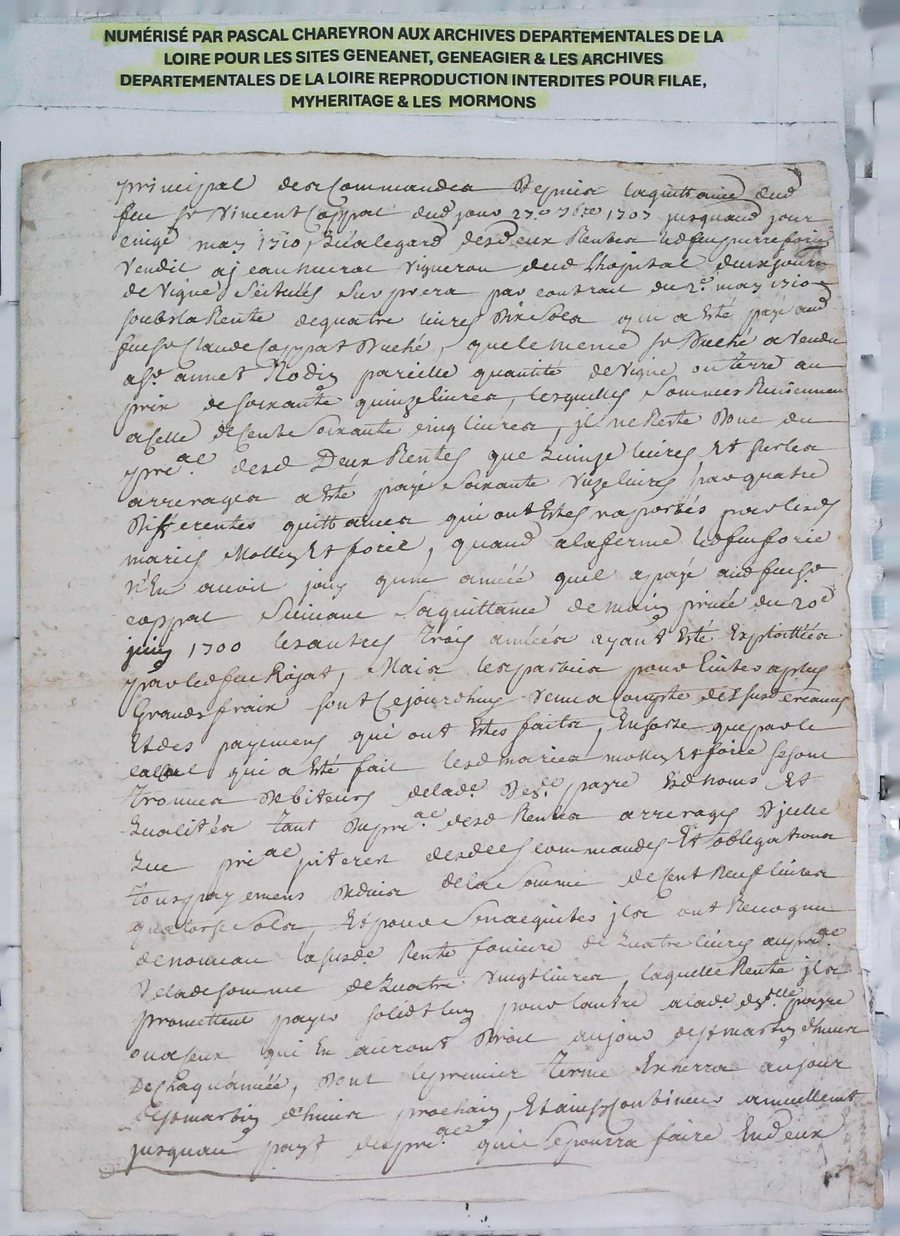 NUMÉRISÉ PAR PASCAL CHAREYRON AUX ARCHIVES DEPARTEMENTALES DE LA
LOIRE POUR LES SITES GENEANET, GENEAGIER & LES ARCHIVES
DEPARTEMENTALES DE LA LOIRE REPRODUCTION INTERDITES POUR FILAE,
MYHERITAGE & LES MORMONS
principal des Commandes Depuis la quittance dud
feu sr Vincent Coppat dud jour 27e 7bre 1707 jusquau jour
cinqe may 1710, Qua legard desd deux Rentes led feu pierre forie
Vendit a jean vigneron dud Lhopital deux journ
de Vigne Scitués Sur par contrait du 2e may 1710
soubs la Rente de quatre livres Dix Sols qui a Esté payé aud
feu sr Claude Coppat Duché, que le mence sr Duché a Vendu
a sr annet Rodis pareille quantité de Vigne ou terre au
prix de soixante quinze livres, lesquelles Sommes Reviennent
a Celle de Cent Soixante cinq livres, il ne Reste Due du
pral desd Deux Rentes que Quinze livres Et sur les
arrerages a Esté payé Soixante livres par quatre
Differentes quittances qui ont Estés raportés par lesd
mariés Mollis Et forie, quand a la ferme led feu forie
N'En avoit jouy qune année quil a payé aud feu sr
coppat Suivant Sa quittance de main privée du 20e
juin 1700 les autres Trois années ayant Esté Exploittées
par led feu Rojat, Mais les parties pour Eviter a plus
Grands fraix sont Cejourdhuy Venu a Compte des susd creances
Et des payemens qui ont Estes faits, En sorte que par le
calcul qui a Esté fait lesd maries mollis Et forie se sont
Trouves Debiteurs de lad. Delle payre Esd noms Et
Qualités Tant Du pral desd Rentes arrerages D'jcelle
Que pral jnterest desd Commandes Et obligations
Tous payemens Deduits de la Somme de Cent Neuf livres
quatorse Sols, Et pour Sen acquites jls ont Recognu
de nouveau la susde Rente fonciere de Quatre livres au pral
De lade somme de Quatre Vingt livres, laquelle Rente jls
promettent payer solidt lun pour lautre a lade delle payre
ou a Ceux qui En auront Droit au jour de st martin d'hiver
De Chaqu'année, Dont le premier Terme Echerra au jour
de st martin d'hiver prochain, Et ainsy Continuer annuellement
jusquau payt du pral qui Se pourra faire En deux